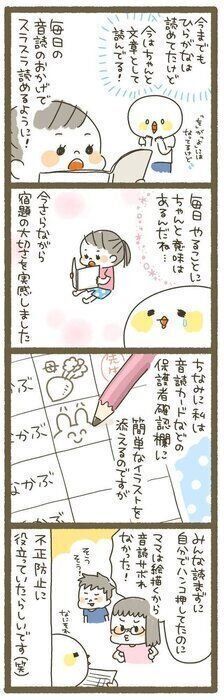 今までも
ひらがなは
読めてたけど
今はちゃんと
文章として
読んでる!
毎日の
音読のおかげで
スラスラ読めるように!
毎日やることに
ちゃんと意味は
あるんだね…
今さらながら
宿題の大切さを実感しました
ちなみに私は
音読カードなどの
保護者確認欄に
簡単なイラストを
添えるのですが
なかぶ
かぶ
なかぶ
みんな読まずに
自分でハンコ押してたのに
ママは絵描くから
音読サボれ
なかった!
そう
そう
不正防止に
役立っていたらしいです(笑)